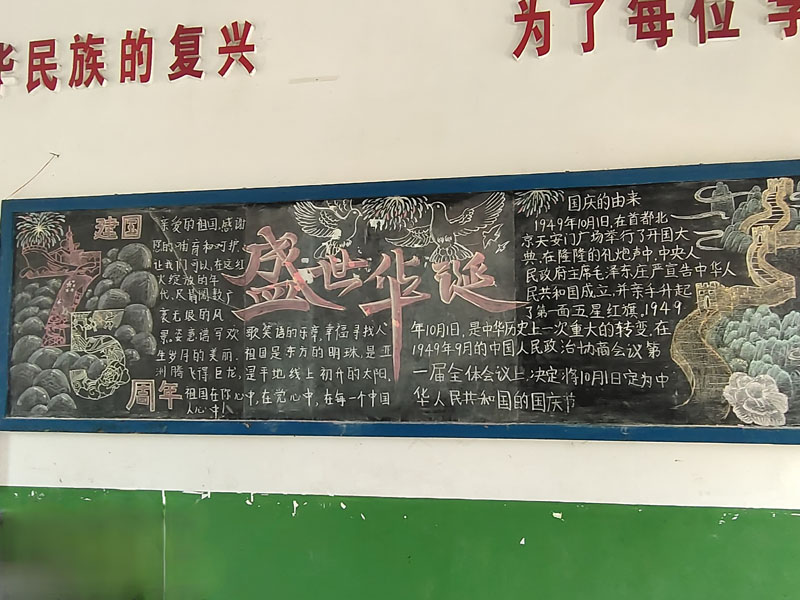 华民族的复兴
为了每位学
建国
75
周年
亲爱的祖国,感谢
您的哺育和呵护,
让我们可以在这红
火绽放的年
代,尽情阅数了
来无垠的风
景,恣意谱写欢
歌笑语的乐章,幸福寻找人
生岁月的美丽.
祖国是东方的明珠,是亚
洲腾飞得巨龙,
是平地线上初升的太阳,
祖国在你心中,在党心中,在每一个中国
人心中!
盛世华诞
国庆的由来
1949年10月1日,在首都北
京天安门广场举行了开国大
典,在隆隆的礼炮声中,中央人
民政府主席毛泽东庄严宣告中华人
民共和国成立,并亲手升起
了第一面五星红旗。1949
年10月1日,是中华历史上一次重大的转变,在
1949年9月的中国人民政治协商会议第
一届全体会议上,决定将10月1日定为中
华人民共和国的国庆节